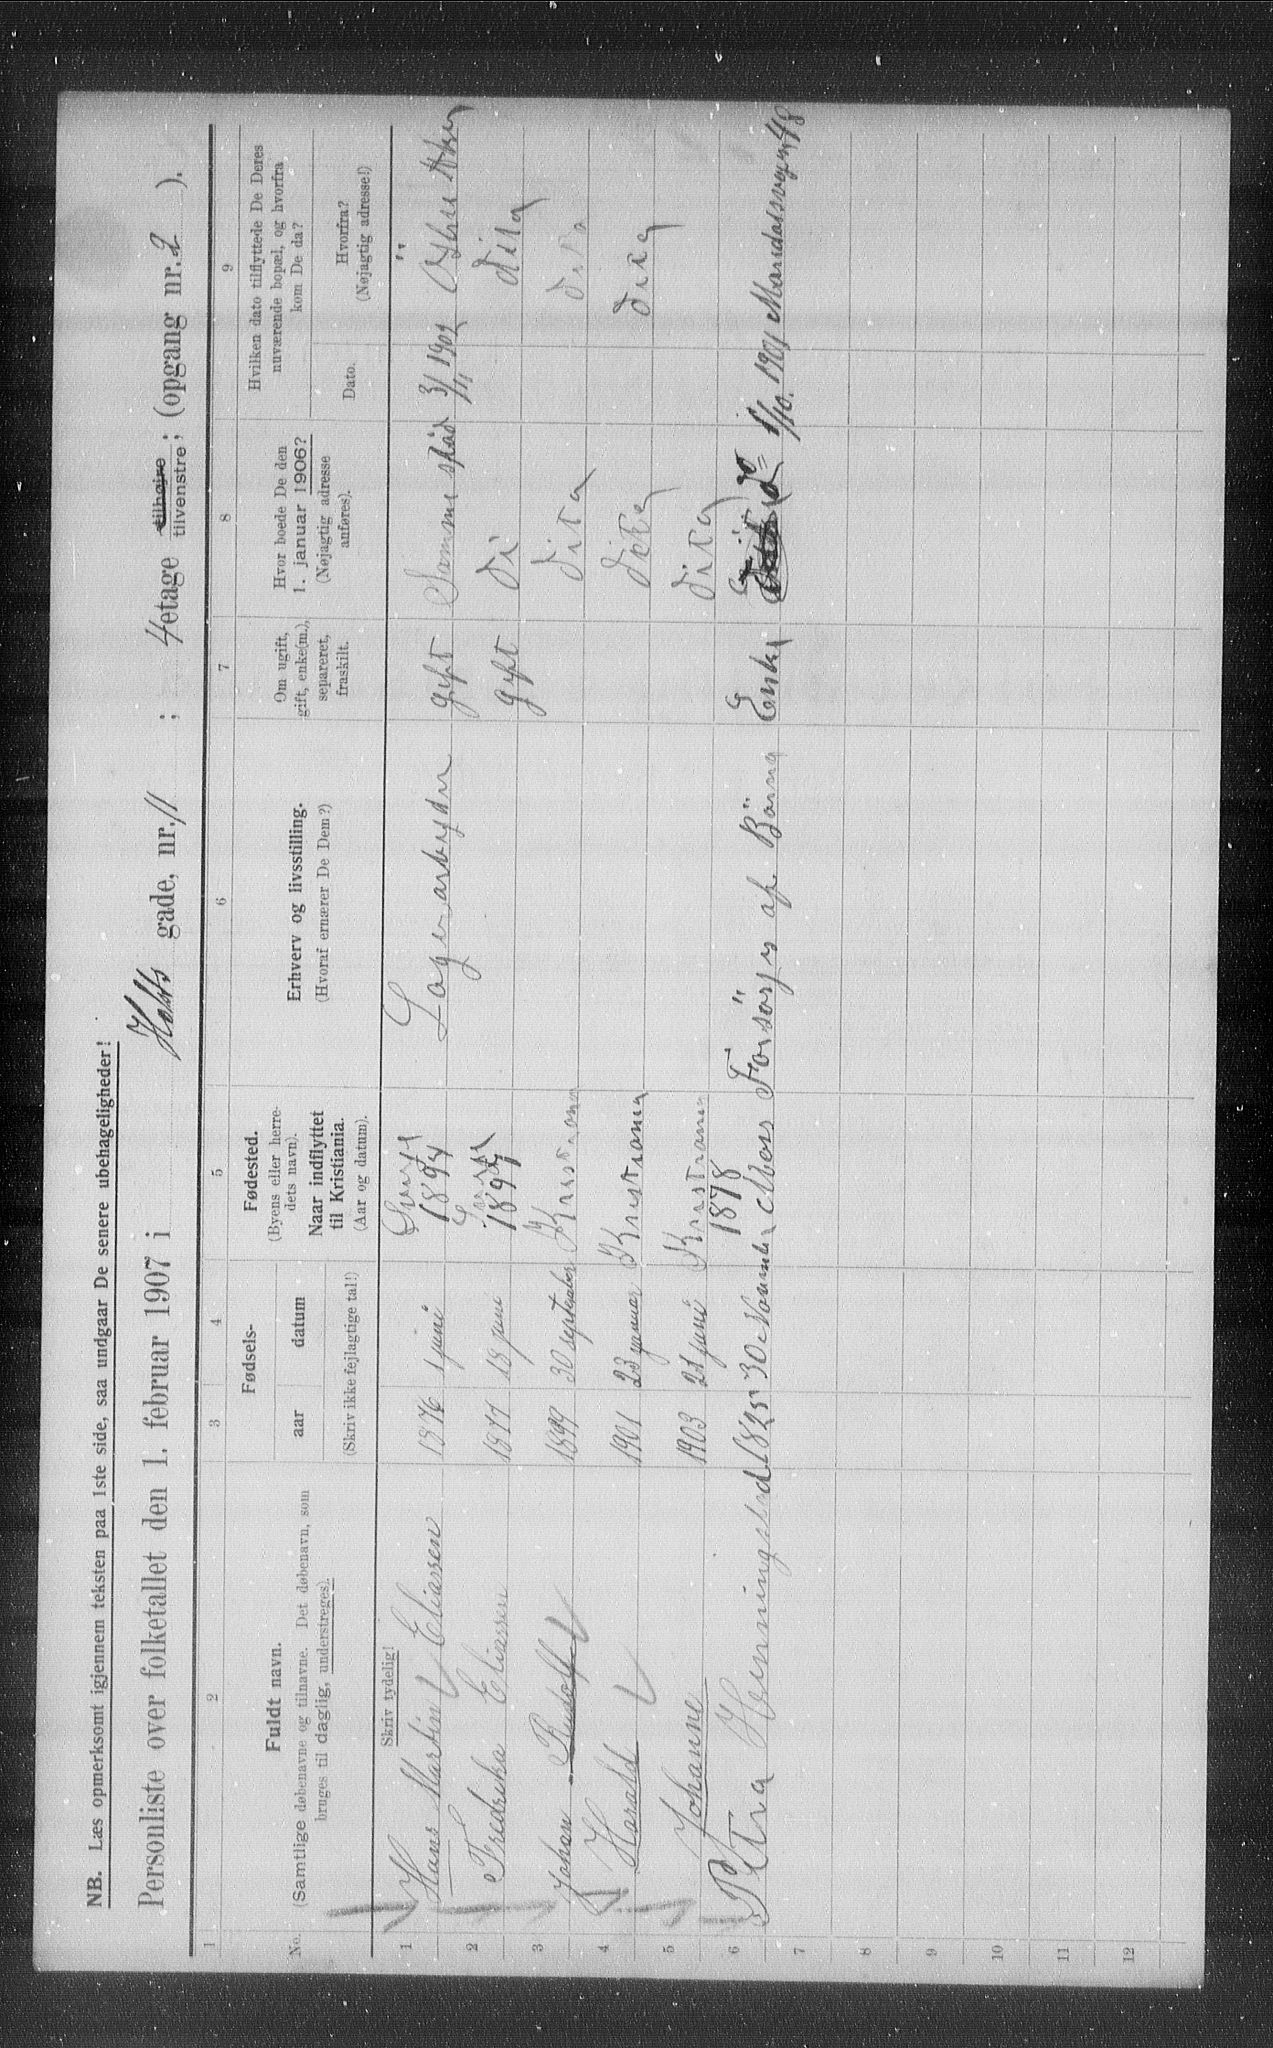 NB. Læs opmerksomt igjennem teksten paa 1ste side, saa undgaar De senere ubehageligheder!
Personliste over folketallet den 1. februar 1907 i Holsts gade, nr. 11 ; 4 etage tilhøjre tilvenstre; (opgang nr. 2 ).
1 2 3 4 5 6 7 8 9
No.
Fuldt navn.
(Samtlige døbenavne og tilnavne. Det døbenavn, som
bruges til daglig, understreges).
Fødsels-
aar datum
(Skriv ikke fejlagtige tal!)
Fødested.
(Byens eller herre-
dets navn).
Naar indflyttet
til Kristiania.
(Aar og datum).
Erhverv og livsstilling.
(Hvoraf ernærer De Dem?)
Om ugift,
gift, enke(m.),
separeret,
fraskilt.
Hvor boede De den
1. januar 1906?
(Nøjagtig adresse
anføres).
Hvilken dato tilflyttede De Deres
nuværende bopæl, og hvorfra
kom De da?
Dato.
Hvorfra?
(Nøjagtig adresse!)
Skriv tydelig!
1 Hans Martin Eliassen 1876 1 juni 1894 Lagerarbyder gift Samme sted 3/11 1902
2 Fredrika Eliassen 1877 18 juni 1897 gift di dita
3 Johan Rudolf 1899 30 september Kristiania dita dita
4 Harald 1901 23 januar Kristiania dita dita
5 Johanne 1903 21 juni Kristiania dita
6 Petra Henningstad 1825 30 November 1878 Moss Forsörges af Börna Enka do 1/10. 1901 Maridalsvejen 48
7
8
9
10
11
12